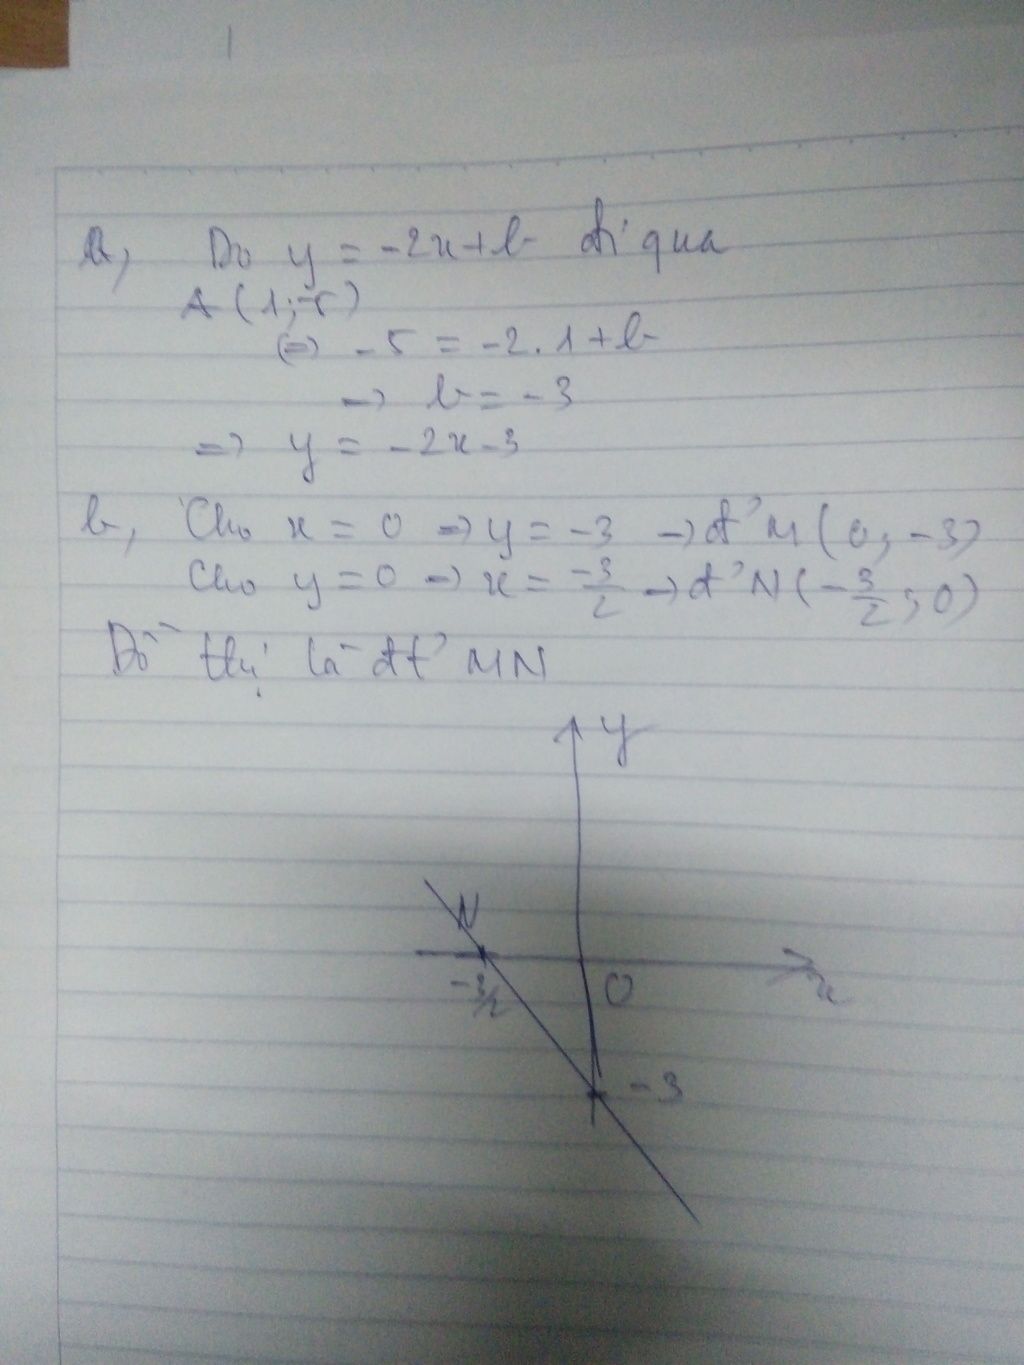 a, Do y = -2x+b đi qua
A(1;-5)
<=> -5 = -2.1+b
-> b = -3
=> y = -2x-3
b, Cho x = 0 => y = -3 -> đ' M(0; -3)
Cho y = 0 -> x = -3/2 -> đ' N(-3/2; 0)
Đồ thị là đt' MN
y
N
-3/2
O
x
-3